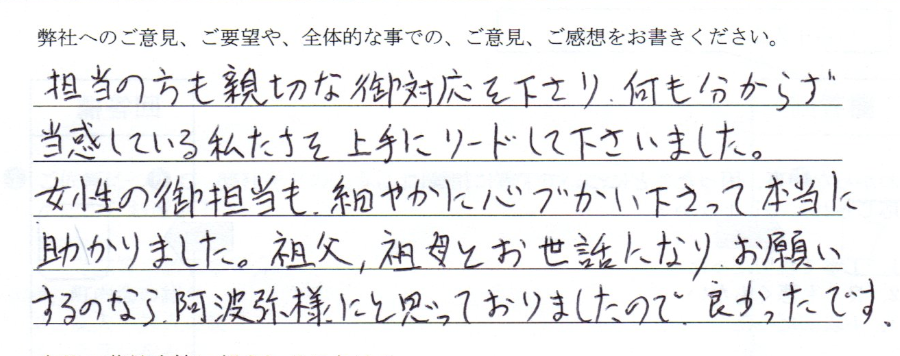 弊社へのご意見、ご要望や、全体的な事での、ご意見、ご感想をお書きください。
担当の方も親切な御対応を下さり、何も分からず
当惑している私たちを上手にリードして下さいました。
女性の御担当も、細やかに心づかい下さって本当に
助かりました。祖父、祖母とお世話になり、お願い
するのなら、阿波弥様にと思っておりましたので、良かったです、